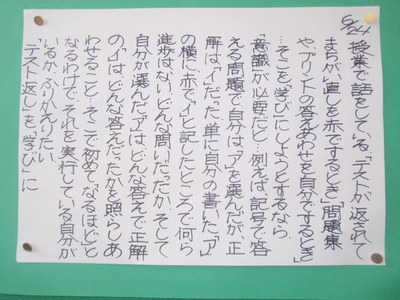 5/24
授業で話をしている、「テストが返されて
まちがい直しを赤でするとき」「問題集
や、プリントの答えあわせを自分でするとき」
…そこを「学び」にしようとするなら、
「意識」が必要だと…例えば、記号で答
える問題で、自分は、「ア」を選んだが、正
解は、「イ」だった…単に自分の書いた、「ア」
の横に赤で、「イ」と記したところで何ら
進歩はない。どんな問いだったか、そして
自分が選んだ、「ア」は、どんな答えで、正解
の「イ」は、どんな答えだったかを照らしあ
わせること…そこで初めて、「なるほど」と
なるわけで、それを実行している自分が
いるか、ふりかえりたい
「テスト返し」を「学び」に